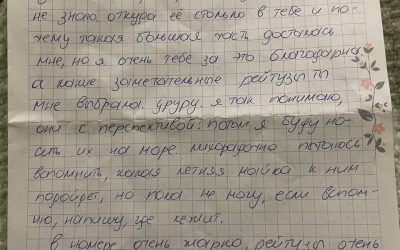 не знаю, откуда её столько в тебе и по-
чему такая большая часть досталась
мне, но я очень тебе за это благодарна
а какие замечательные рейтузы ты
мне выбрала. уруру. я так понимаю,
они с перспективой: потом я буду но-
сить их на море. лихорадочно пытаюсь
вспомнить, какая летняя майка к ним
подойдет, но пока не могу, если вспом-
ню, напишу, где лежит.
в номере очень жарко, рейтузы очень